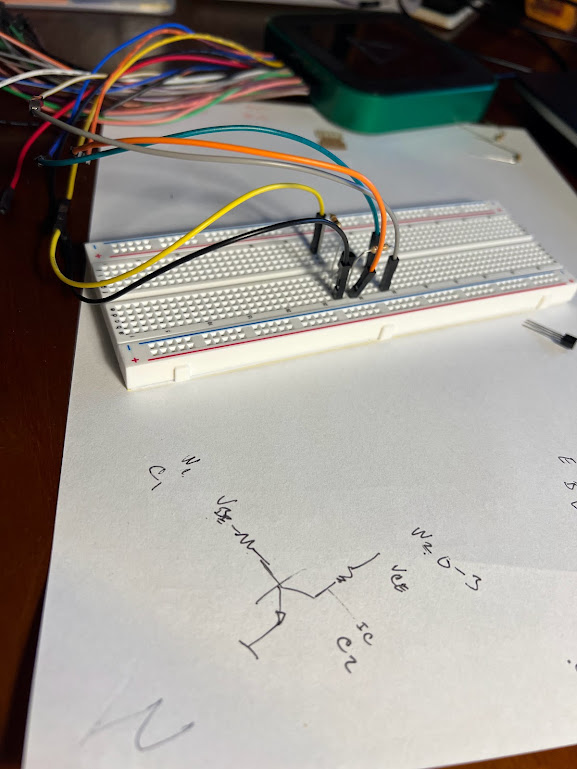 W1
C1
VBE
W2 0-3
VCE
IC
C2
E
B